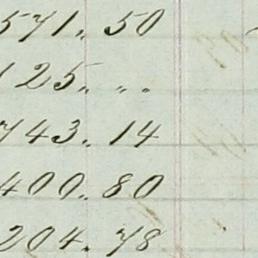 571.. 50
125.. ..
743.. 14
400.. 80
204.. 78